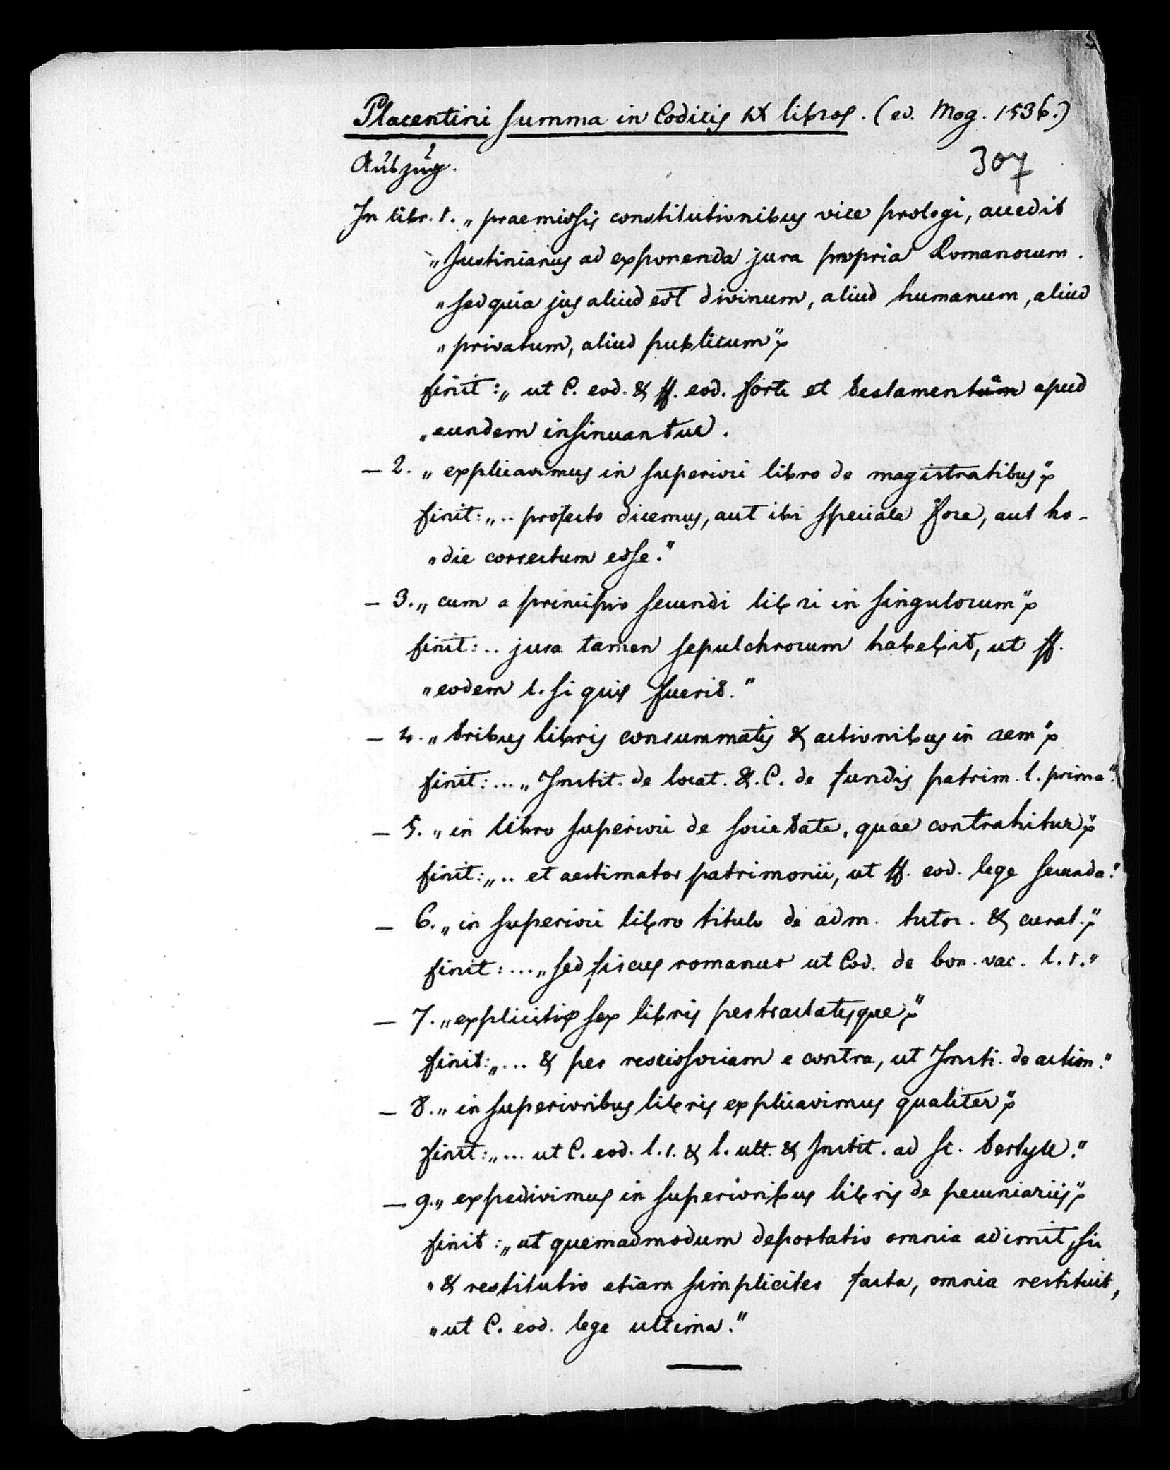 Placentini Summa in Codicis IX libros. (ed. Mog. 1536.)
Auszug.
307
In libr. 1. „praemissis constitutionibus vice prologi, accedit
„Justinianus ad exponenda jura propria Romanorum.
„sed quia jus aliud est divinum, aliud humanum, aliud
„privatum, aliud publicum“
finit: „ut C. eod. & ff. eod. forte et testamenta apud
„eundem insinuantur.
— 2. „explicavimus in superiori libro de magistratibus“
finit: „.. profecto dicemus, aut ibi speciale fore, aut ho-
„die correctum esse.“
— 3. „cum a principio secundi libri in singulorum“
finit: .. jura tamen sepulchrorum habebit, ut ff.
„eodem l. si quis fuerit.“
— 4. „tribus libris consummatis & actionibus in rem“
finit: ... „Instit. de locat. & C. de fundis patrim. l. prima“.
— 5. „in libro superiori de societate, quae contrahitur“
finit: „.. et aestimator patrimonii, ut ff. eod. lege secunda.“
— 6. „in superiori libro titulo de adm. tutor. & curat.“
finit: ... „sed fiscus romanus ut Cod. de bon. vac. l. 1.“
— 7. „explicitis sex libris pertractatisque“
finit: „... & per rescissoriam e contra, ut Insti. de action.“
— 8. „in superioribus libris explicavimus qualiter“
finit: „... ut C. eod. l. 1. & l. ult. & Instit. ad sc. tertyll.“
— 9. „expedivimus in superioribus libris de pecuniariis“
finit: „ut quemadmodum deportatio omnia adimit, sic
„& restitutio etiam simpliciter facta, omnia restituit,
„ut C. eod. lege ultima.“